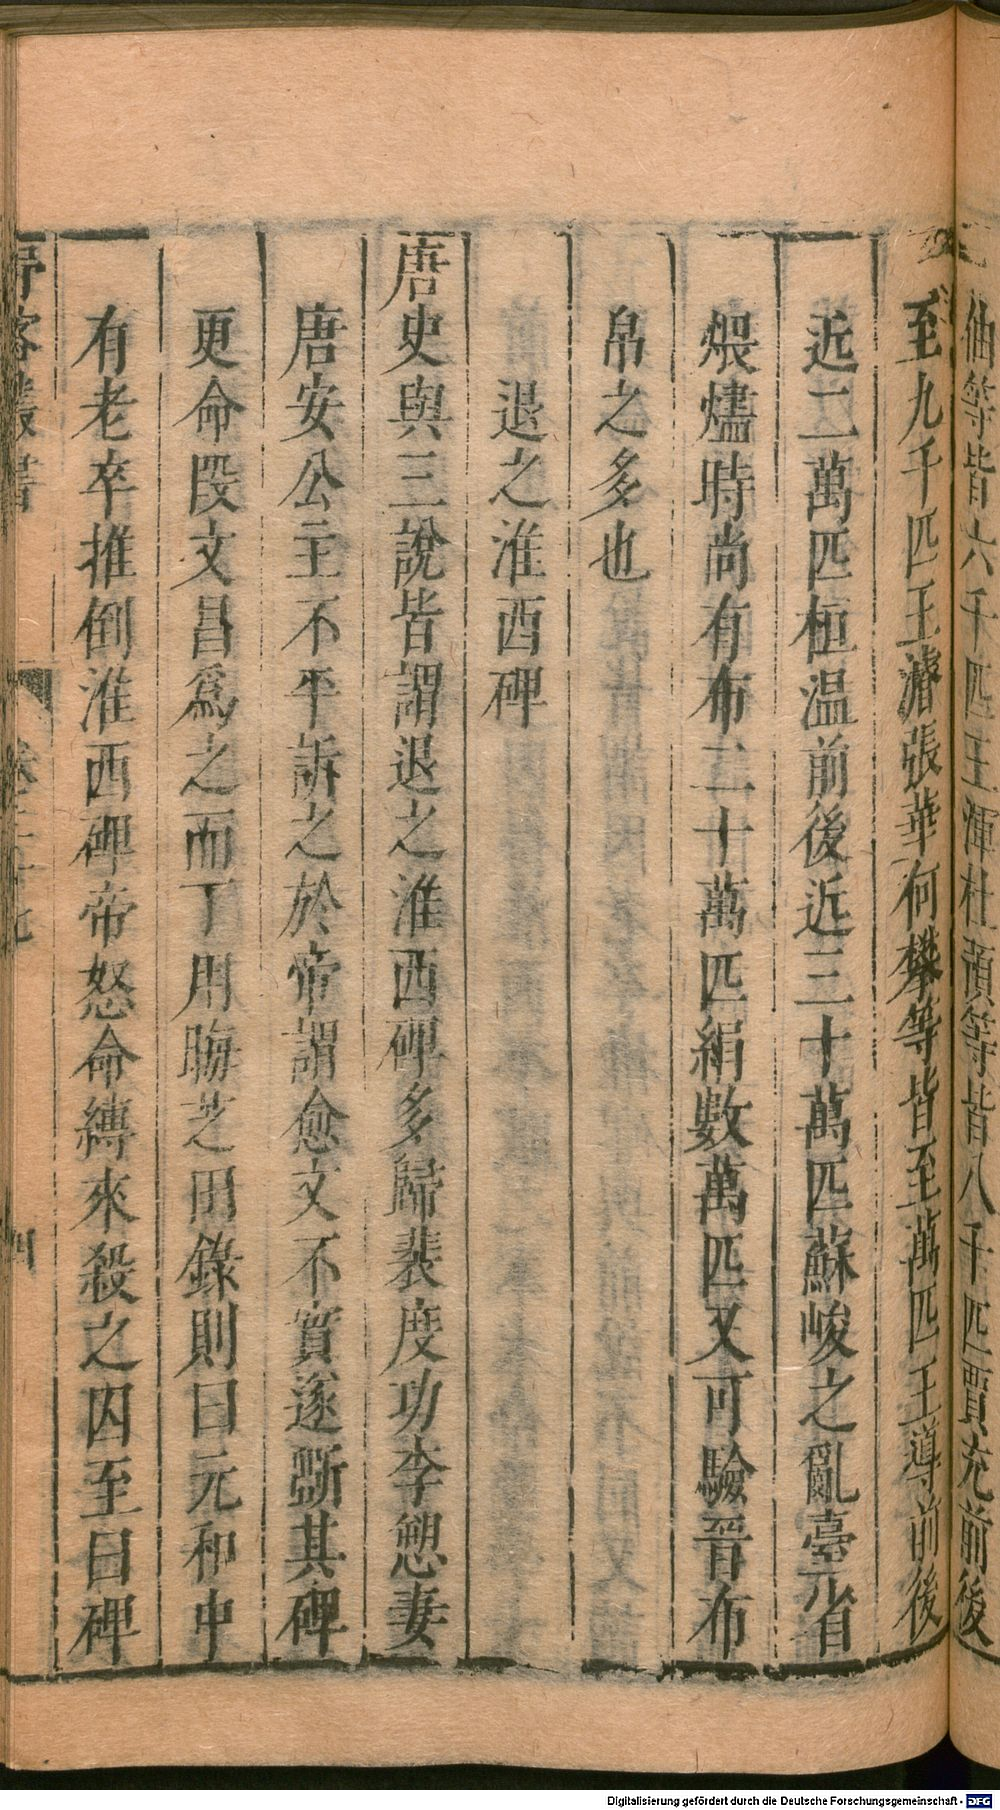 伷等皆六千匹王渾杜預等皆八千匹賈充前後
至九千匹王濬張華何攀等皆至萬匹王導前後
近二萬匹桓温前後近三十萬匹蘇峻之亂臺省
煨燼時尚有布二十萬匹絹數萬匹又可驗晉布
帛之多也
退之淮西碑
唐史與三說皆謂退之淮西碑多歸裴度功李愬妻
唐安公主不平訴之於帝謂愈文不實遂斲其碑
更命段文昌爲之而丁用晦芝田錄則曰元和中
有老卒推倒淮西碑帝怒命縛來殺之囚至曰碑
野客叢書 卷二十七 四
Digitalisierung gefördert durch die Deutsche Forschungsgemeinschaft - DFG